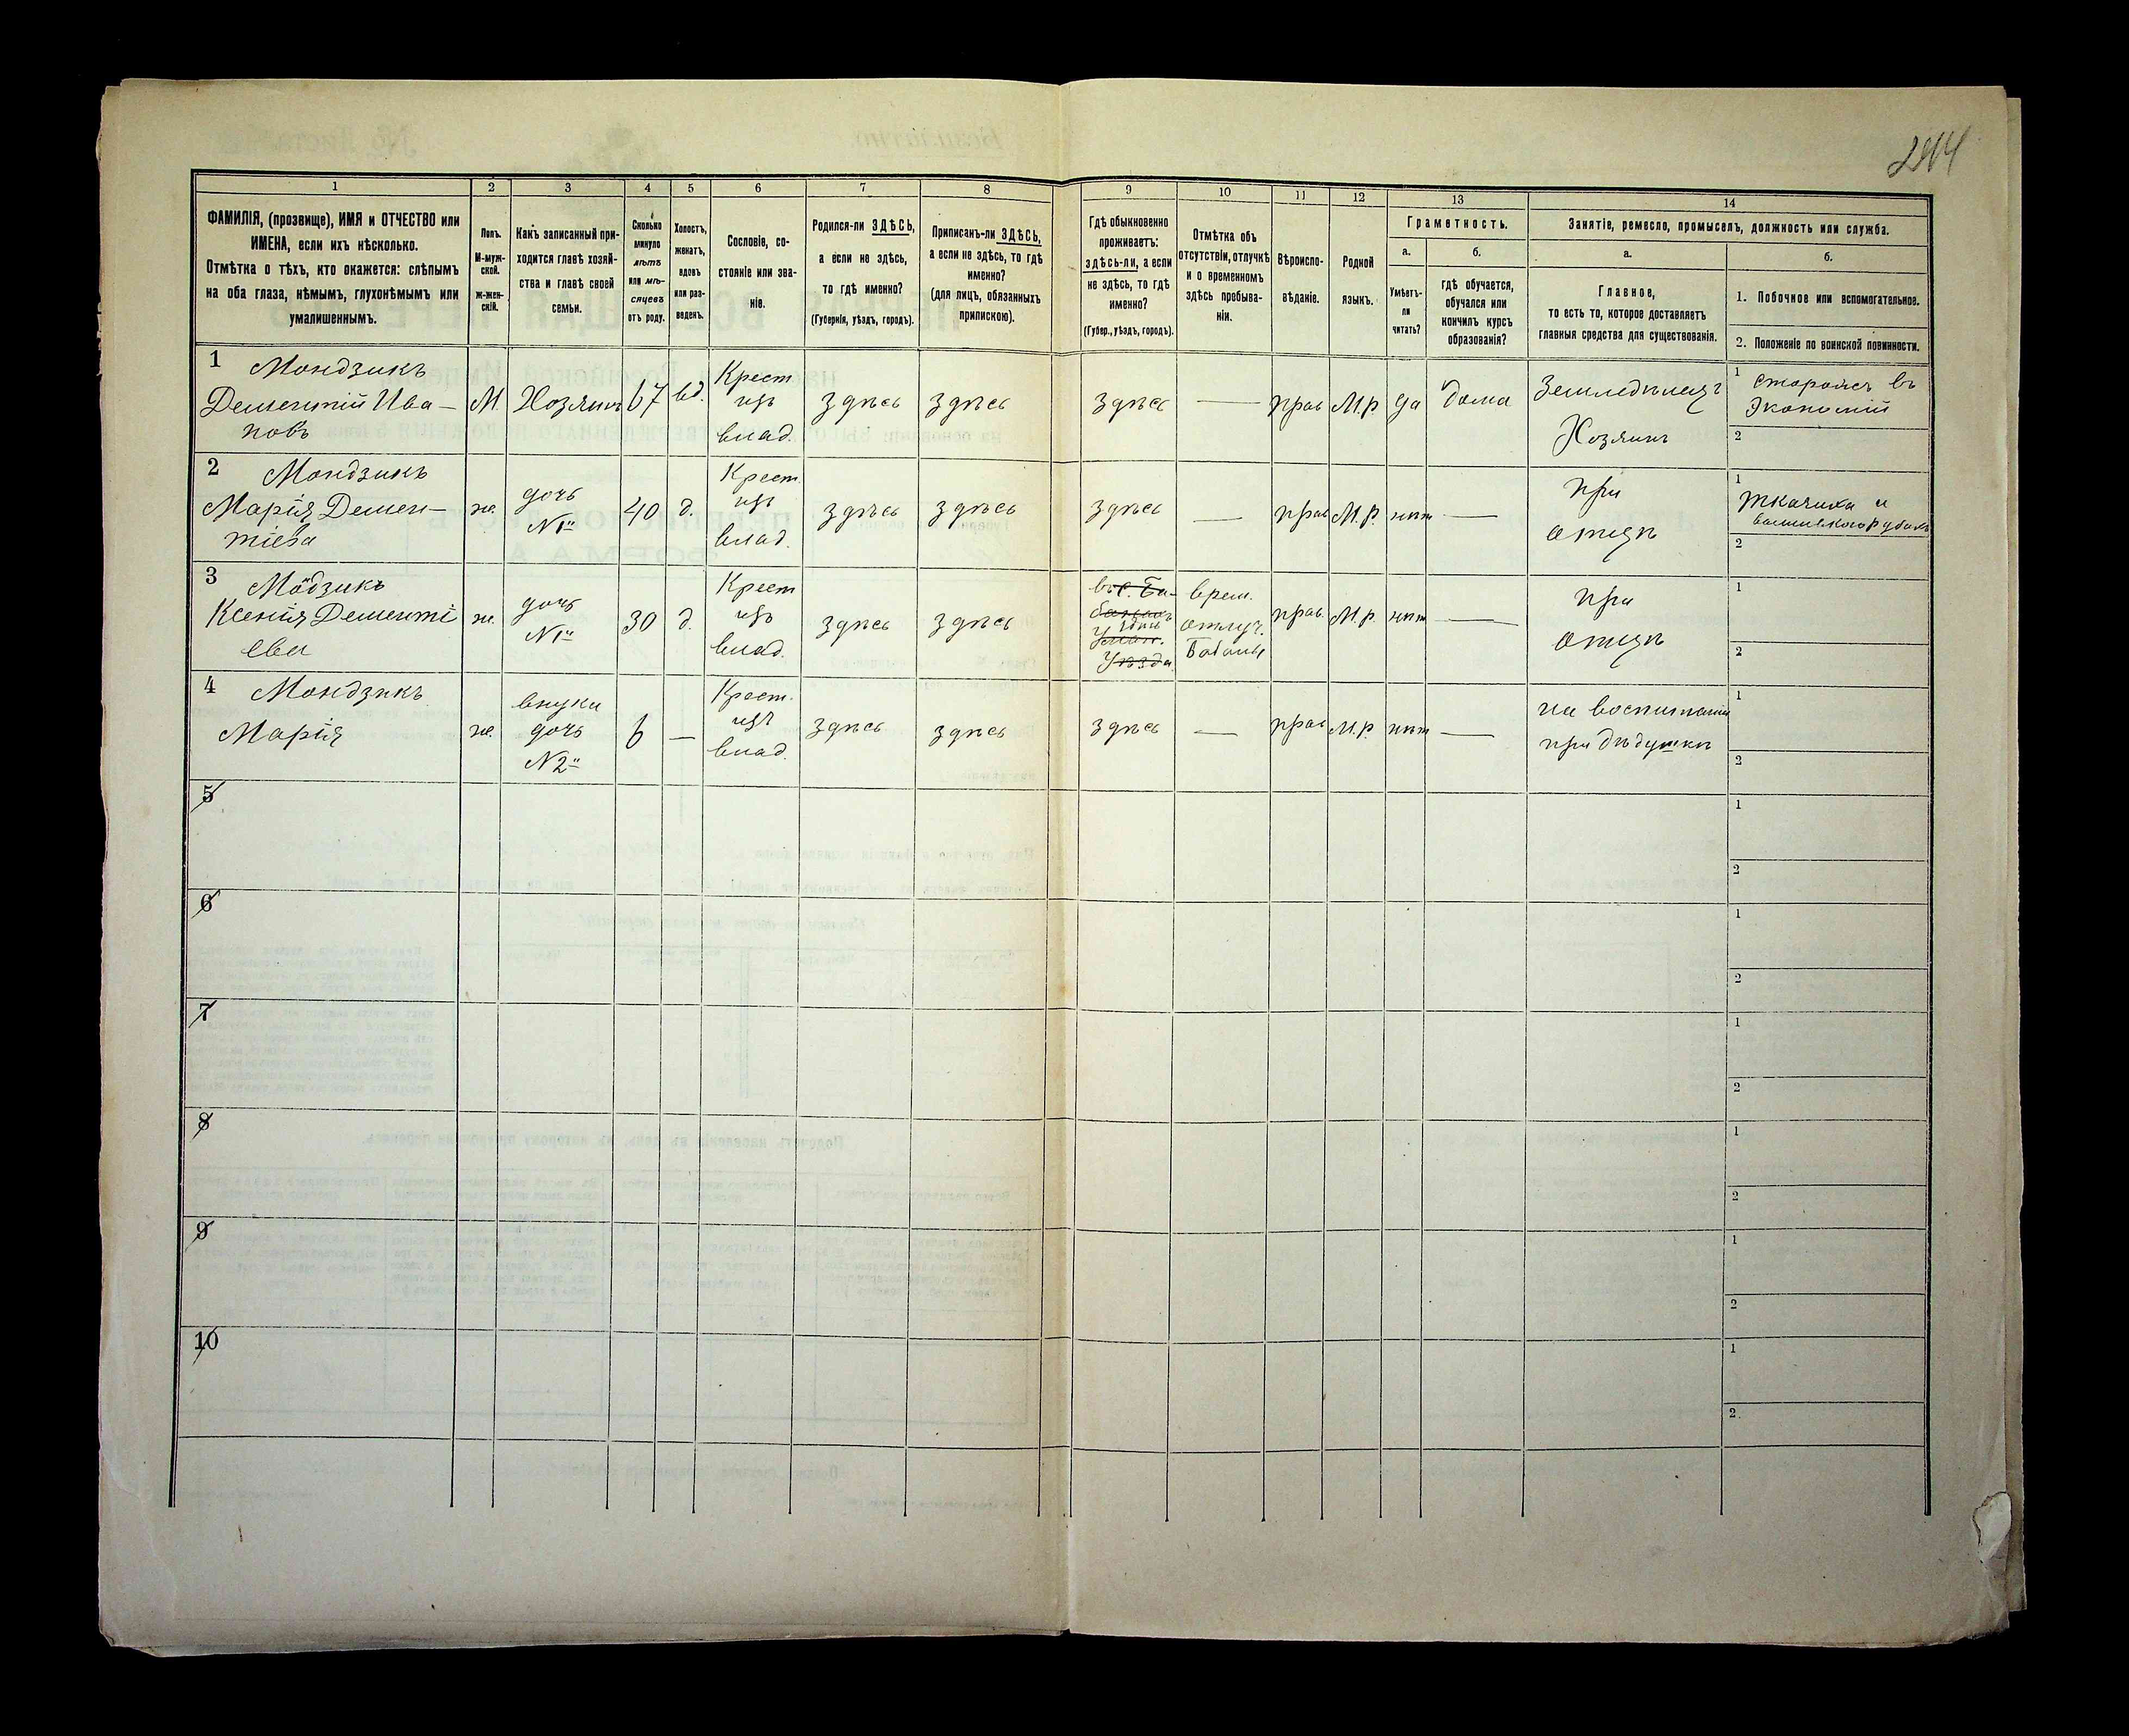 244
1 2 3 4 5 6 7 8 9 10 11 12 13 14
ФАМИЛІЯ, (прозвище), ИМЯ и ОТЧЕСТВО или
ИМЕНА, если ихъ нѣсколько.
Отмѣтка о тѣхъ, кто окажется: слѣпымъ
на оба глаза, нѣмымъ, глухонѣмымъ или
умалишеннымъ.
Полъ.
М-муж-
ской.
Ж-жен-
скій.
Какъ записанный при-
ходится главѣ хозяй-
ства и главѣ своей
семьи.
Сколько
минуло
лѣтъ
или мѣ-
сяцевъ
отъ роду.
Холостъ,
женатъ,
вдовъ
или раз-
веденъ.
Сословіе, со-
стояніе или зва-
ніе.
Родился-ли ЗДѢСЬ,
а если не здѣсь,
то гдѣ именно?
(Губернія, уѣздъ, городъ).
Приписанъ-ли ЗДѢСЬ,
а если не здѣсь, то гдѣ
именно?
(для лицъ, обязанныхъ
припискою).
Гдѣ обыкновенно
проживаетъ:
здѣсь-ли, а если
не здѣсь, то гдѣ
именно?
(Губер., уѣздъ, городъ).
Отмѣтка объ
отсутствіи, отлучкѣ
и о временномъ
здѣсь пребыва-
ніи.
Вѣроиспо-
вѣданіе.
Родной
языкъ.
Граметность.
а.
Умѣетъ-
ли
читать?
б.
гдѣ обучается,
обучался или
кончилъ курсъ
образованія?
Занятіе, ремесло, промыселъ, должность или служба.
а.
Главное,
то есть то, которое доставляетъ
главныя средства для существованія.
б.
1. Побочное или вспомогательное.
2. Положеніе по воинской повинности.
1 Мондзикъ
Дементій Ива-
новъ
М.
Хозяинъ
67
вд.
Крест
изъ
влад.
здѣсь
здѣсь
здѣсь
—
прав
М.р.
да
дома
Земледѣлецъ
Хозяинъ
1 сторожъ въ
Экономіи
2
2 Мондзикъ
Марія Демен-
тіева
ж.
дочь
№1й
40
д.
Крест.
изъ
влад.
здѣсь
здѣсь
здѣсь
—
прав
М.р.
нѣт
—
при
отцѣ
1
ткачиха и
2
3 Модзикъ
Ксенія Дементі
ева
ж.
дочь
№1й
30
д.
Крест
изъ
влад.
здѣсь
здѣсь
въ с. Ба-
здѣсь
Уман.
Уѣзда
врем.
отлуч.
Бабаны
прав.
М.р.
нѣт
—
при
отцѣ
1
2
4 Мондзикъ
Марія
ж.
внука
дочь
№2й
6
—
Крест.
изъ
влад.
здѣсь
здѣсь
здѣсь
—
прав
М.р.
нѣт
—
на воспитаніи
при дѣдушкѣ
1
2
5
1
2
6
1
2
7
1
2
8
1
2
9
1
2
10
1
2.